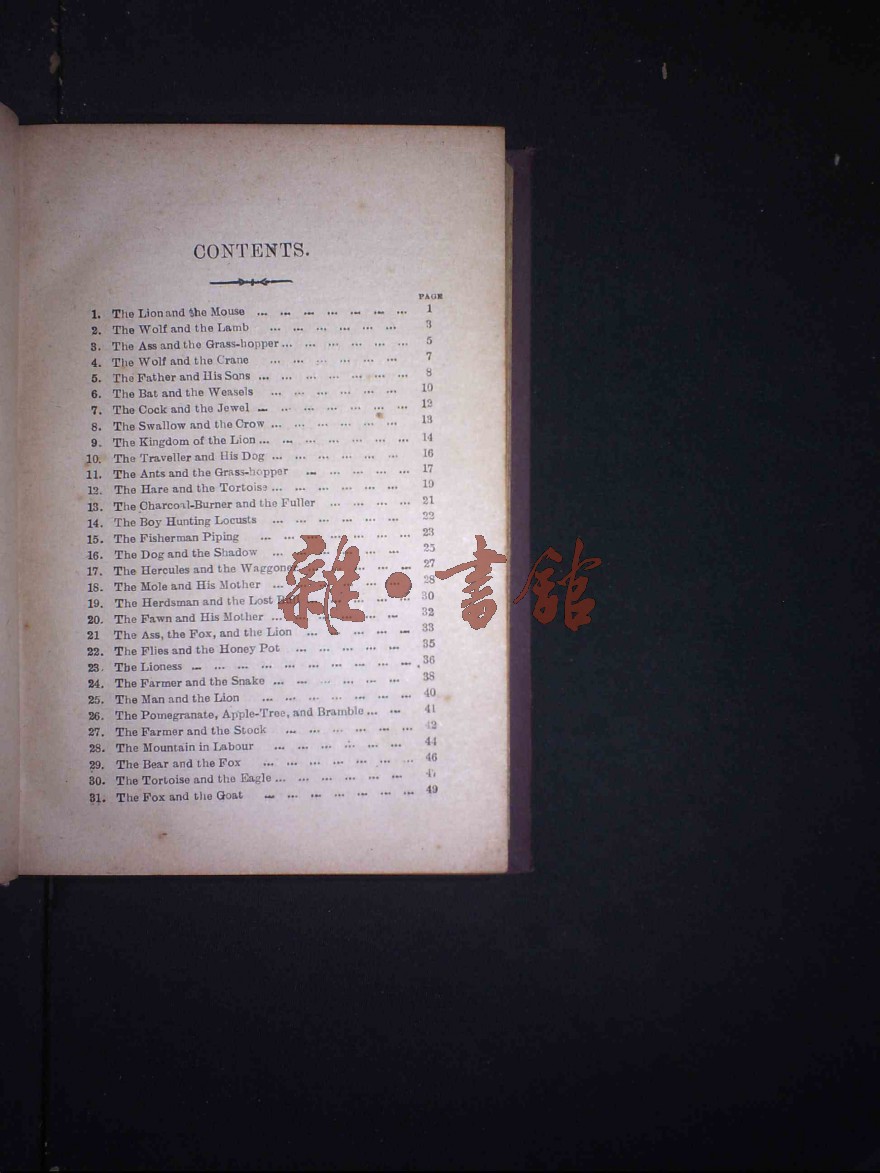 CONTENTS.
PAGE
1. The Lion and the Mouse ... ... ... ... ... ... ... 1
2. The Wolf and the Lamb ... ... ... ... ... ... 3
3. The Ass and the Grass-hopper ... ... ... ... ... ... 5
4. The Wolf and the Crane ... ... ... ... ... ... 7
5. The Father and His Sons ... ... ... ... ... ... ... 8
6. The Bat and the Weasels ... ... ... ... ... ... 10
7. The Cock and the Jewel ... ... ... ... ... ... ... 12
8. The Swallow and the Crow ... ... ... ... ... ... 13
9. The Kingdom of the Lion ... ... ... ... ... ... ... 14
10. The Traveller and His Dog ... ... ... ... ... ... 16
11. The Ants and the Grass-hopper ... ... ... ... ... 17
12. The Hare and the Tortoise ... ... ... ... ... ... 19
13. The Charcoal-Burner and the Fuller ... ... ... ... 21
14. The Boy Hunting Locusts ... ... ... ... ... ... 22
15. The Fisherman Piping ... ... ... ... ... ... ... 23
16. The Dog and the Shadow ... ... ... ... ... ... 25
17. The Hercules and the Waggoner ... ... ... ... ... 27
18. The Mole and His Mother ... ... ... ... ... ... 28
19. The Herdsman and the Lost Bull ... ... ... ... ... 30
20. The Fawn and His Mother ... ... ... ... ... ... 32
21 The Ass, the Fox, and the Lion ... ... ... ... ... 33
22. The Flies and the Honey Pot ... ... ... ... ... 35
23. The Lioness ... ... ... ... ... ... ... ... ... ... 36
24. The Farmer and the Snake ... ... ... ... ... ... 38
25. The Man and the Lion ... ... ... ... ... ... ... 40
26. The Pomegranate, Apple-Tree, and Bramble ... ... 41
27. The Farmer and the Stock ... ... ... ... ... ... 42
28. The Mountain in Labour ... ... ... ... ... ... 44
29. The Bear and the Fox ... ... ... ... ... ... ... 46
30. The Tortoise and the Eagle ... ... ... ... ... ... 47
31. The Fox and the Goat ... ... ... ... ... ... ... 49
雜·書館